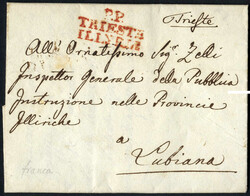 P.P.
TRIESTE
ILLYRIE
Trieste
All' Ornatissimo Sigr. Zelli
Inspettor Generale della Pubblica
Instruzione nelle Provincie
Illiriche
a
Lubiana
franca